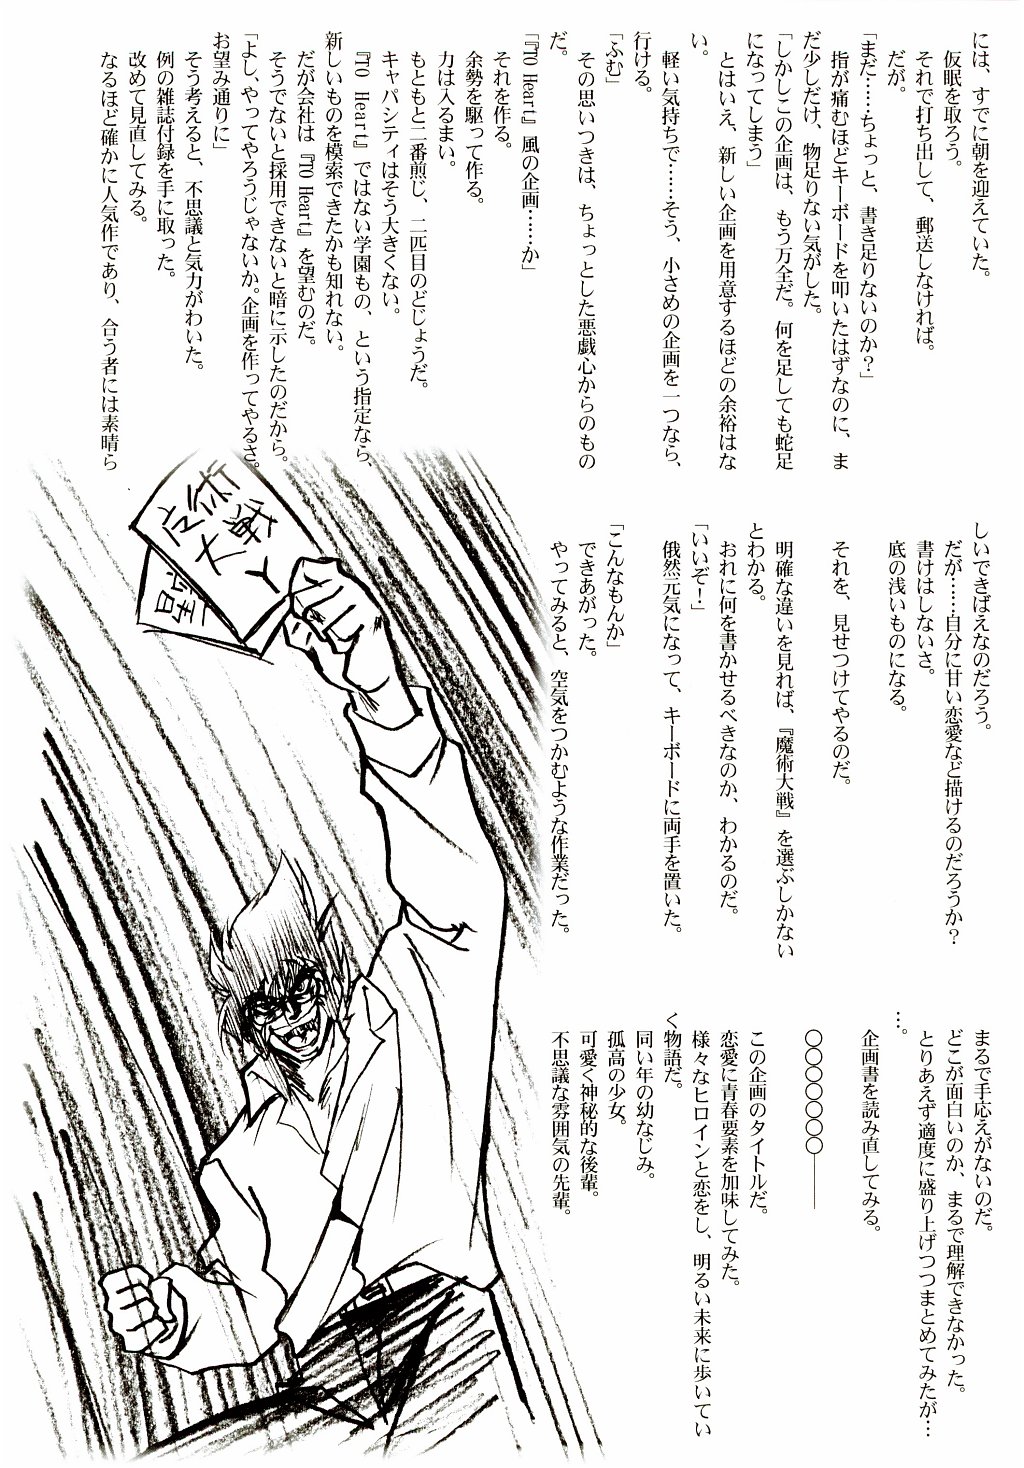 には、すでに朝を迎えていた。
仮眠を取ろう。
それで打ち出して、郵送しなければ。
だが。
「まだ……ちょっと、書き足りないのか？」
指が痛むほどキーボードを叩いたはずなのに、ま
だ少しだけ、物足りない気がした。
「しかしこの企画は、もう万全だ。何を足しても蛇足
になってしまう」
とはいえ、新しい企画を用意するほどの余裕はな
い。
軽い気持ちで……そう、小さめの企画を一つなら、
行ける。
「ふむ」
その思いつきは、ちょっとした悪戯心からのもの
だ。
「『TO Heart』風の企画……か」
それを作る。
余勢を駆って作る。
力は入るまい。
もともと二番煎じ、二匹目のどじょうだ。
キャパシティはそう大きくない。
『TO Heart』ではない学園もの、という指定なら、
新しいものを模索できたかも知れない。
だが会社は『TO Heart』を望むのだ。
そうでないと採用できないと暗に示したのだから。
「よし、やってやろうじゃないか。企画を作ってやるさ。
お望み通りに」
そう考えると、不思議と気力がわいた。
例の雑誌付録を手に取った。
改めて見直してみる。
なるほど確かに人気作であり、合う者には素晴ら
しいできばえなのだろう。
だが……自分に甘い恋愛など描けるのだろうか？
書けはしないさ。
底の浅いものになる。
それを、見せつけてやるのだ。
明確な違いを見れば、『魔術大戦』を選ぶしかない
とわかる。
おれに何を書かせるべきなのか、わかるのだ。
「いいぞ！」
俄然元気になって、キーボードに両手を置いた。
「こんなもんか」
できあがった。
やってみると、空気をつかむような作業だった。
まるで手応えがないのだ。
どこが面白いのか、まるで理解できなかった。
とりあえず適度に盛り上げつつまとめてみたが…
…。
企画書を読み直してみる。
〇〇〇〇〇〇――
この企画のタイトルだ。
恋愛に青春要素を加味してみた。
様々なヒロインと恋をし、明るい未来に歩いてい
く物語だ。
同い年の幼なじみ。
孤高の少女。
可愛く神秘的な後輩。
不思議な雰囲気の先輩。